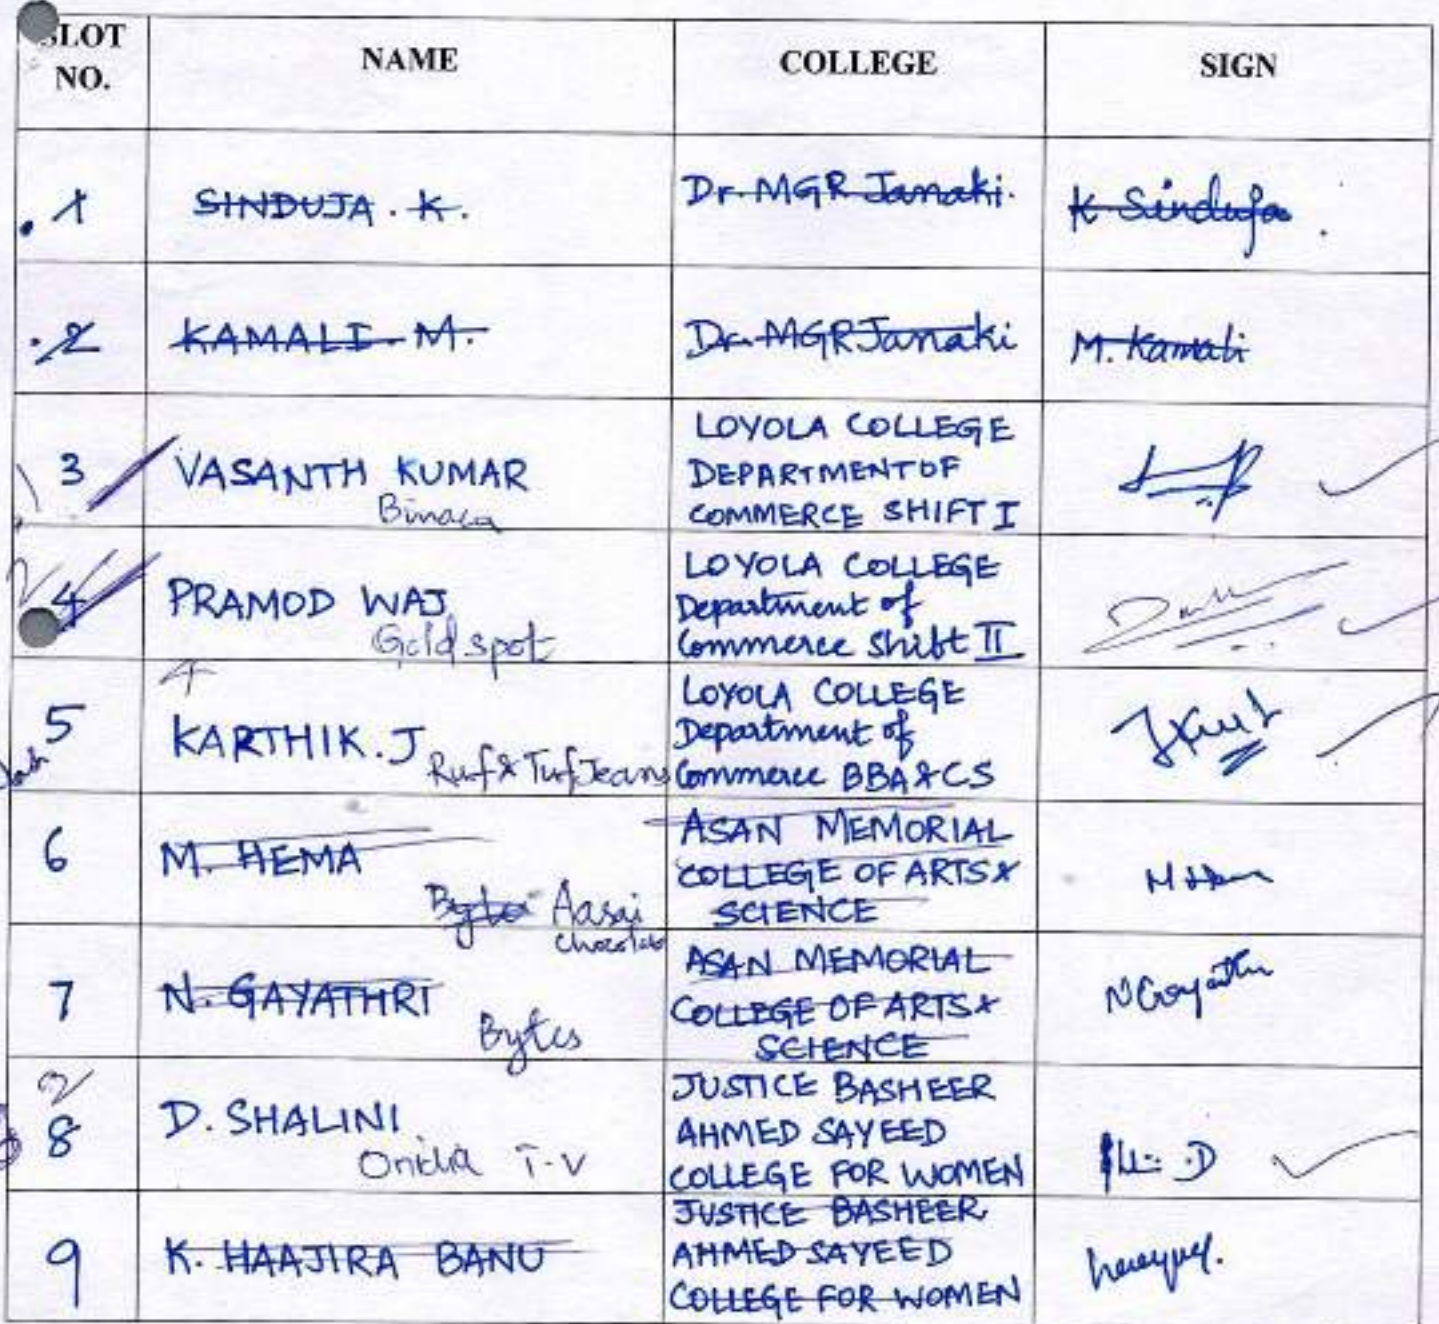 SLOT NO. NAME COLLEGE SIGN
1 SINDUJA . K. Dr. MGR Janaki. K Sinduja
2 KAMALI. M. Dr. MGR Janaki M. Kamali
3 VASANTH KUMAR
Binaca
LOYOLA COLLEGE
DEPARTMENT OF
COMMERCE SHIFT I
4 PRAMOD WAJ
Gold spot
LOYOLA COLLEGE
Department of
Commerce Shift II
4
5 KARTHIK. J
Ruf & Tuf Jeans
LOYOLA COLLEGE
Department of
Commerce BBA & CS
6 M. HEMA
Bytes Aasai
Chocolate
ASAN MEMORIAL
COLLEGE OF ARTS &
SCIENCE
M Hema
7 N. GAYATHRI
Bytes
ASAN MEMORIAL
COLLEGE OF ARTS &
SCIENCE
N Gayathri
8 D. SHALINI
Onida T-V
JUSTICE BASHEER
AHMED SAYEED
COLLEGE FOR WOMEN
9 K. HAAJIRA BANU
JUSTICE BASHEER
AHMED SAYEED
COLLEGE FOR WOMEN